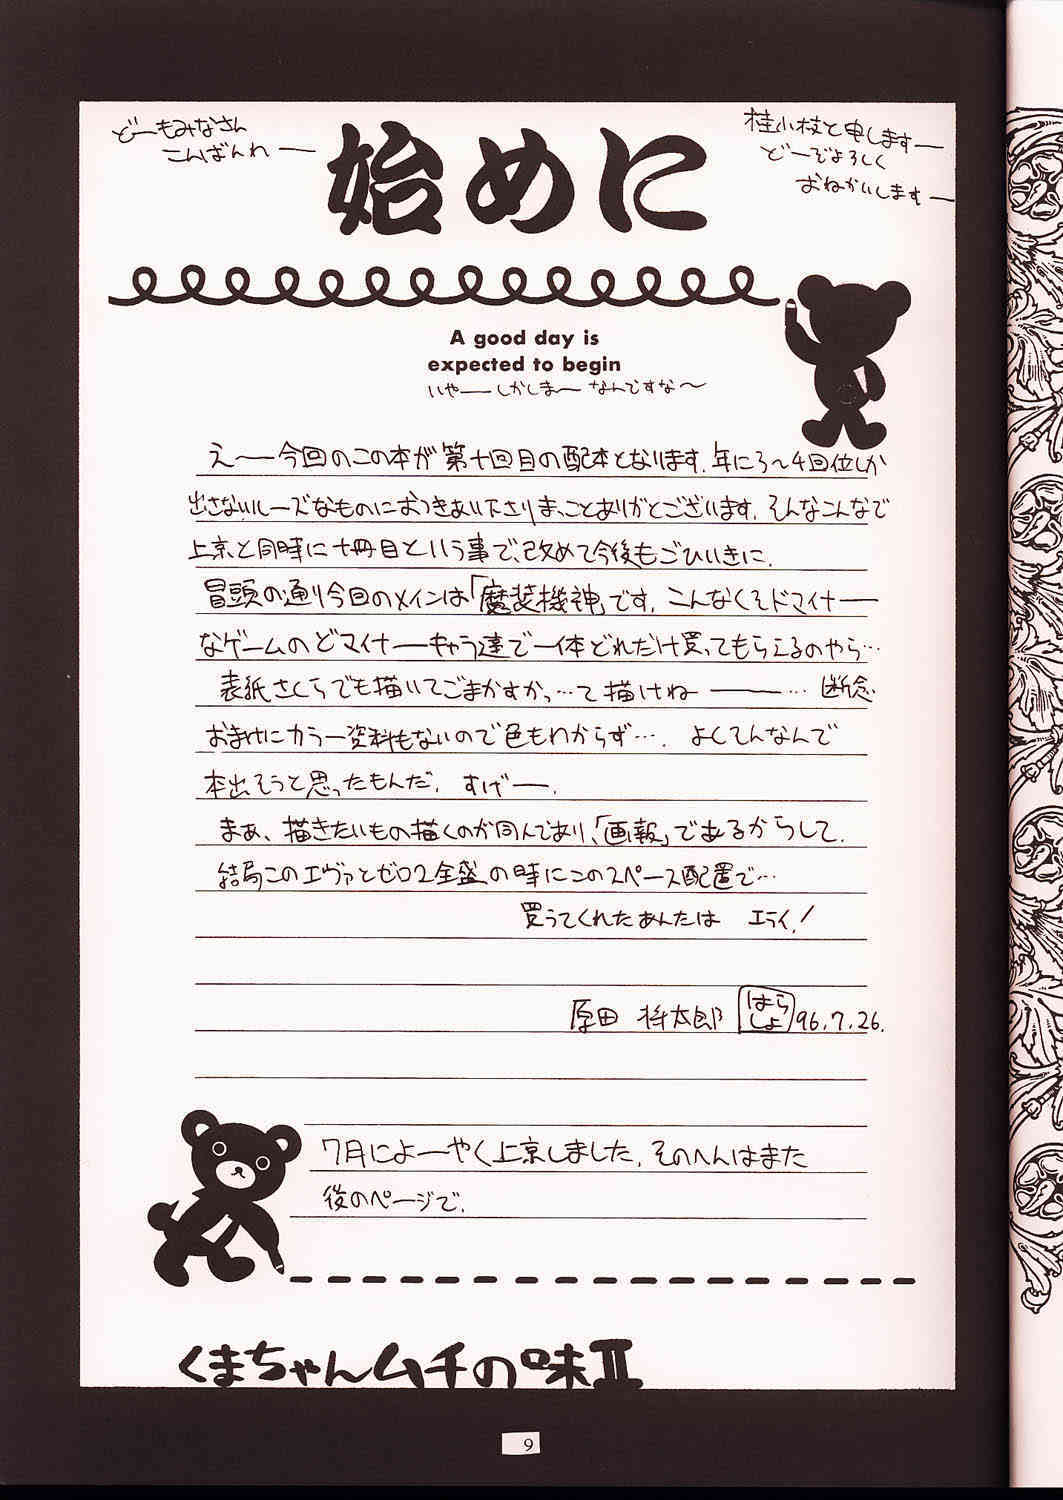 どーもみなさん
こんばんわー
始めに
桂小枝と申しますー
どーぞよろしく
おねがいしますー
A good day is
expected to begin
いやーしかしまーなんですな〜
えー今回のこの本が第十回目の配本となります.年に3〜4回位しか
出さないルーズなものにおつきあい下さりまっことありがとございます.そんなこんなで
上京と同時に十冊目という事で、改めて今後もごひいきに.
冒頭の通り今回のメインは「魔装機神」です.こんなくそドマイナー
なゲームのどマイナーキャラ達で一体どれだけ買ってもらえるのやら…
表紙さくらでも描いてごまかすかっ…て描けねー…断念
おまけにカラー資料もないので色もわからず….よくてんなんで
本出そうと思ったもんだ.すげー.
まぁ、描きたいもの描くのが同人であり、「画報」であるからして.
結局このエヴァとゼロ2全盛の時にこのスペース配置で…
買うてくれたあんたは エライ!
原田 将太郎 はらしょ 96.7.26.
7月によーやく上京しました.そのへんはまた
後のページで.
くまちゃんムチの味II
9